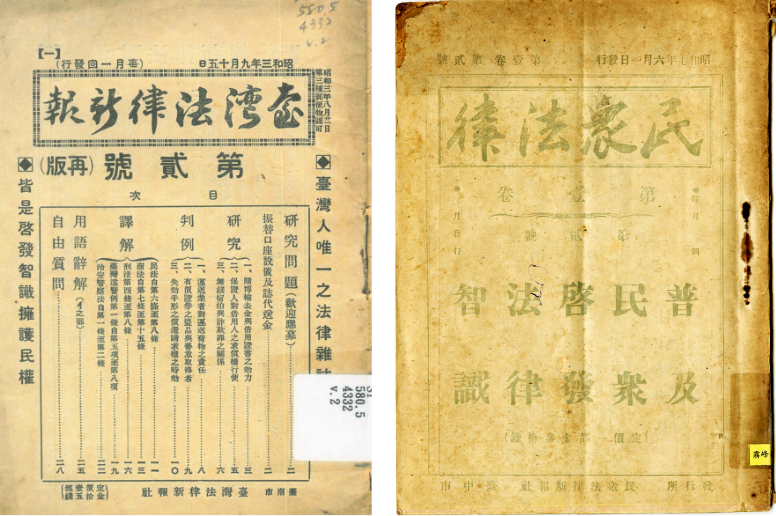 580.5
4332
v.2
【一】
(每月一回發行)
昭和三年九月十五日
昭和三年八月廿二日
第三種郵便物認可
臺灣法律新報
第貳號(再版)
◆臺灣人唯一之法律雜誌
◆皆是啓發智識擁護民權
目次
研究問題(歡迎應募)……二
振替口座設置及誌代送金……二
研究
一、賭博輸去金與借用證書之効力……三
二、保證人對借用人之求償權行使……五
三、無錢宿泊與詐欺罪之關係……六
判例
一、運送業者對運送荷物之責任……八
二、有價證券之盜品與善意取得者……九
三、失効手形之償還請求權之時効……一〇
譯解
民法自第六條至第八條……一一
商法自第七條至第十五條……一三
刑法第四條至第八條……一六
臺灣違警例第一條自第五項至第八項……一九
治安警察法自第一條至第二條……二二
用語辭解(イ之部)……二五
自由質問……二八
臺南市 臺灣法律新報社
定價金壹拾五錢
580.5
4332
v.2
昭和七年六月一日發行
第壹卷第貳號
民衆法律
第壹卷
第貳號
每月一回
一日發行
普及
民衆
啓發
法律
智識
(定價一部金參拾錢)
發行所 民衆法律新報社 臺中市
霧峰